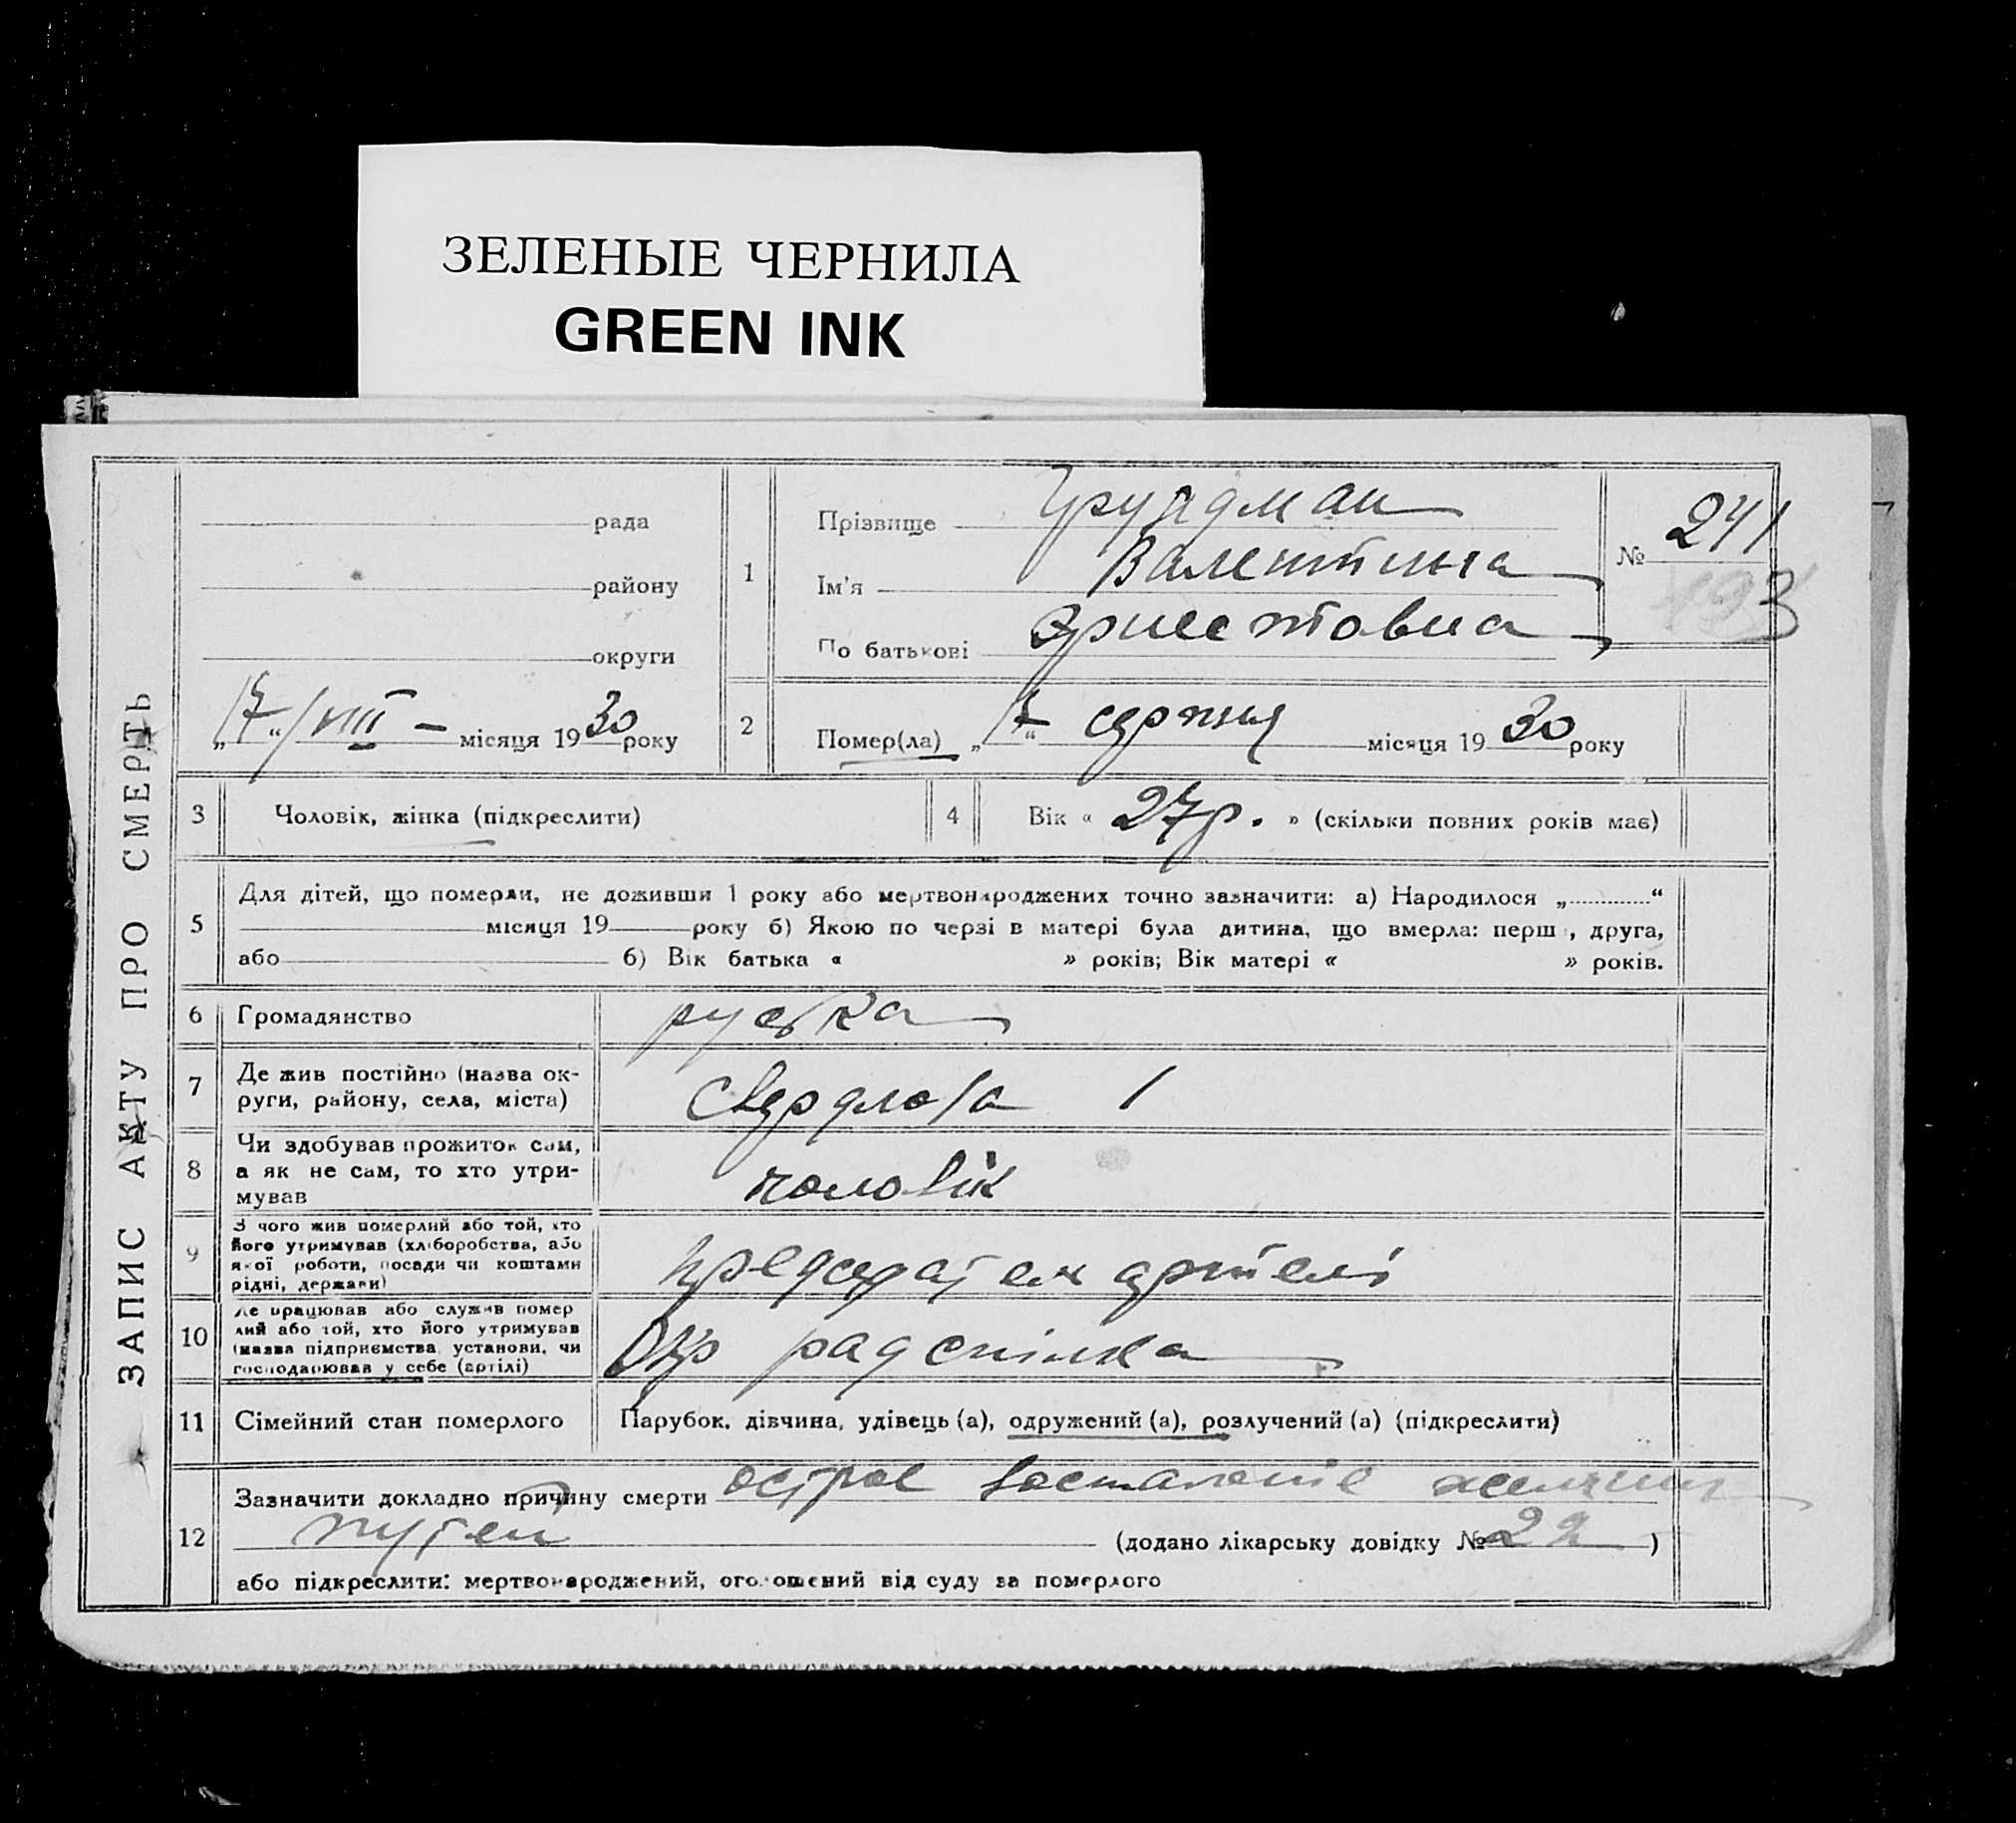 ЗЕЛЕНЫЕ ЧЕРНИЛА
GREEN INK
ЗАПИС АКТУ ПРО СМЕРТЬ
рада
району
округи
„17“/VIII – місяця 1930 року
1
Прізвище
Ім'я Валентина
По батькові Эрнестовна
№ 241
2
Помер(ла) „17“ серпня місяця 1930 року
3
Чоловік, жінка (підкреслити)
4
Вік « 27р. » (скільки повних років має)
5
Для дітей, що померли, не доживши 1 року або мертвонароджених точно зазначити: а) Народилося „............“
місяця 19 року б) Якою по черзі в матері була дитина, що вмерла: перш , друга,
або б) Вік батька « » років; Вік матері « » років.
6
Громадянство
руська
7
Де жив постійно (назва ок-
руги, району, села, міста)
Свердлова 1
8
Чи здобував прожиток сам,
а як не сам, то хто утри-
мував
чоловік
9
З чого жив померлий або той, хто
його утримував (хліборобства, або
якої роботи, посади чи коштами
рідні, держави)
председатель артелі
10
Де працював або служив помер
лий або той, хто його утримував
(назва підприємства, установи, чи
господарював у себе (артілі)
Окр радспілка
11
Сімейний стан померлого
Парубок, дівчина, удівець (а), одружений (а), розлучений (а) (підкреслити)
12
Зазначити докладно причину смерти острое воспаление желчных
путей (додано лікарську довідку № 22 )
або підкреслити: мертвонароджений, оголошений від суду за померлого